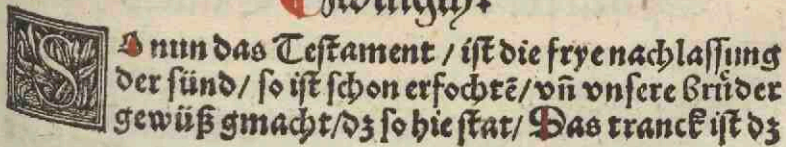 SO nun das Testament / ist die frye nachlassung
der sünd / so ist schon erfochtē / vn̄ vnsere brůder
gewüß gmacht / dz so hie stat / Das tranck ist dz